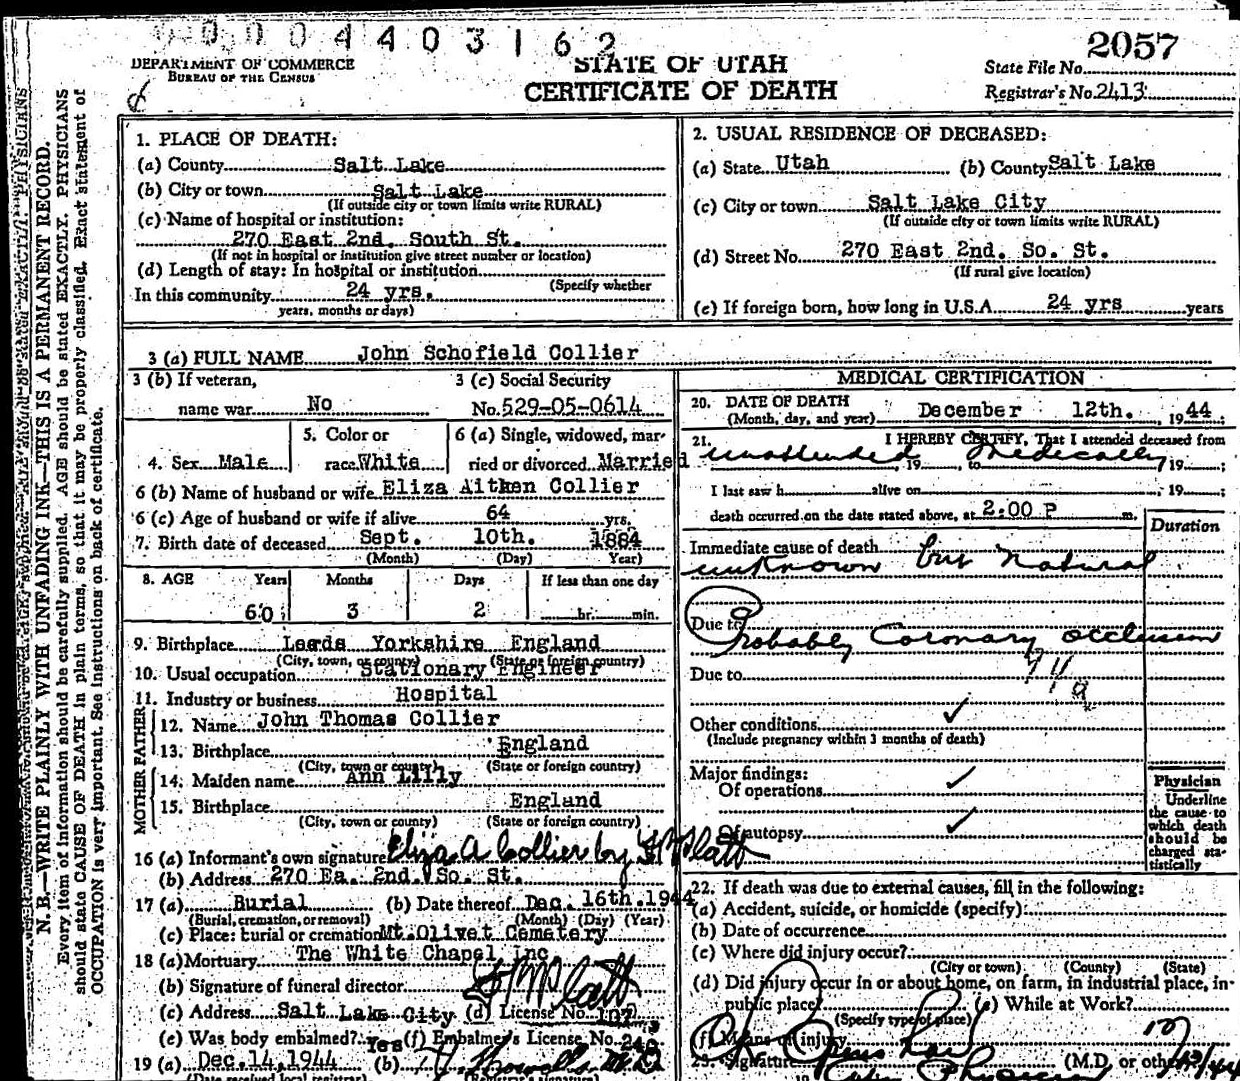 0004403162
2057
DEPARTMENT OF COMMERCE
BUREAU OF THE CENSUS
STATE OF UTAH
CERTIFICATE OF DEATH
State File No.
Registrar's No. 2413
N. B.—WRITE PLAINLY WITH UNFADING INK—THIS IS A PERMANENT RECORD.
Every item of information should be carefully supplied. AGE should be stated EXACTLY. PHYSICIANS
should state CAUSE OF DEATH in plain terms, so that it may be properly classified. Exact statement of
OCCUPATION is very important. See instructions on back of certificate.
1. PLACE OF DEATH:
(a) County Salt Lake
(b) City or town Salt Lake
(If outside city or town limits write RURAL)
(c) Name of hospital or institution:
270 East 2nd. South St.
(If not in hospital or institution give street number or location)
(d) Length of stay: In hospital or institution
(Specify whether
In this community 24 yrs.
years, months or days)
2. USUAL RESIDENCE OF DECEASED:
(a) State Utah (b) County Salt Lake
(c) City or town Salt Lake City
(If outside city or town limits write RURAL)
(d) Street No. 270 East 2nd. So. St.
(If rural give location)
(e) If foreign born, how long in U.S.A. 24 yrs years
3 (a) FULL NAME John Schofield Collier
3 (b) If veteran, name war No
3 (c) Social Security No. 529-05-0614
4. Sex Male
5. Color or race White
6 (a) Single, widowed, married or divorced Married
6 (b) Name of husband or wife Eliza Aitken Collier
6 (c) Age of husband or wife if alive 64 yrs.
7. Birth date of deceased Sept. 10th. 1884
(Month) (Day) Year)
8. AGE Years Months Days If less than one day
60 3 2 hr. min.
9. Birthplace Leeds Yorkshire England
(City, town, or county) (State or foreign country)
10. Usual occupation Stationary Engineer
11. Industry or business Hospital
FATHER
12. Name John Thomas Collier
13. Birthplace England
(City, town or county) (State or foreign country)
MOTHER
14. Maiden name Ann Lilly
15. Birthplace England
(City, town or county) (State or foreign country)
16 (a) Informant's own signature Eliza A Collier by
(b) Address 270 Ea. 2nd. So. St.
17 (a) Burial (b) Date thereof Dec. 16th. 1944
(Burial, cremation, or removal) (Month) (Day) (Year)
(c) Place: burial or cremation Mt. Olivet Cemetery
18 (a) Mortuary The White Chapel Inc
(b) Signature of funeral director
(c) Address Salt Lake City (d) License No. 107
(e) Was body embalmed? Yes (f) Embalmer's License No.
19 (a) Dec. 14, 1944 (b)
(Date received local registrar)
MEDICAL CERTIFICATION
20. DATE OF DEATH December 12th. , 1944
(Month, day, and year)
21. I HEREBY CERTIFY, That I attended deceased from
unattended , 19 , to medically , 19 ;
I last saw h alive on , 19 ;
death occurred on the date stated above, at 2:00 P m.
Duration
Immediate cause of death but natural
unknown
Due to
Probably Coronary occlusion
94a
Due to
Other conditions ✓
(Include pregnancy within 3 months of death)
Major findings:
Of operations ✓
Of autopsy ✓
Physician
Underline
the cause to
which death
should be
charged sta-
tistically
22. If death was due to external causes, fill in the following:
(a) Accident, suicide, or homicide (specify):
(b) Date of occurrence
(c) Where did injury occur?
(City or town) (County) (State)
(d) Did injury occur in or about home, on farm, in industrial place, in
public place? (e) While at Work?
(Specify type of place)
(f) Means of injury
23. Signature (M.D. or other)